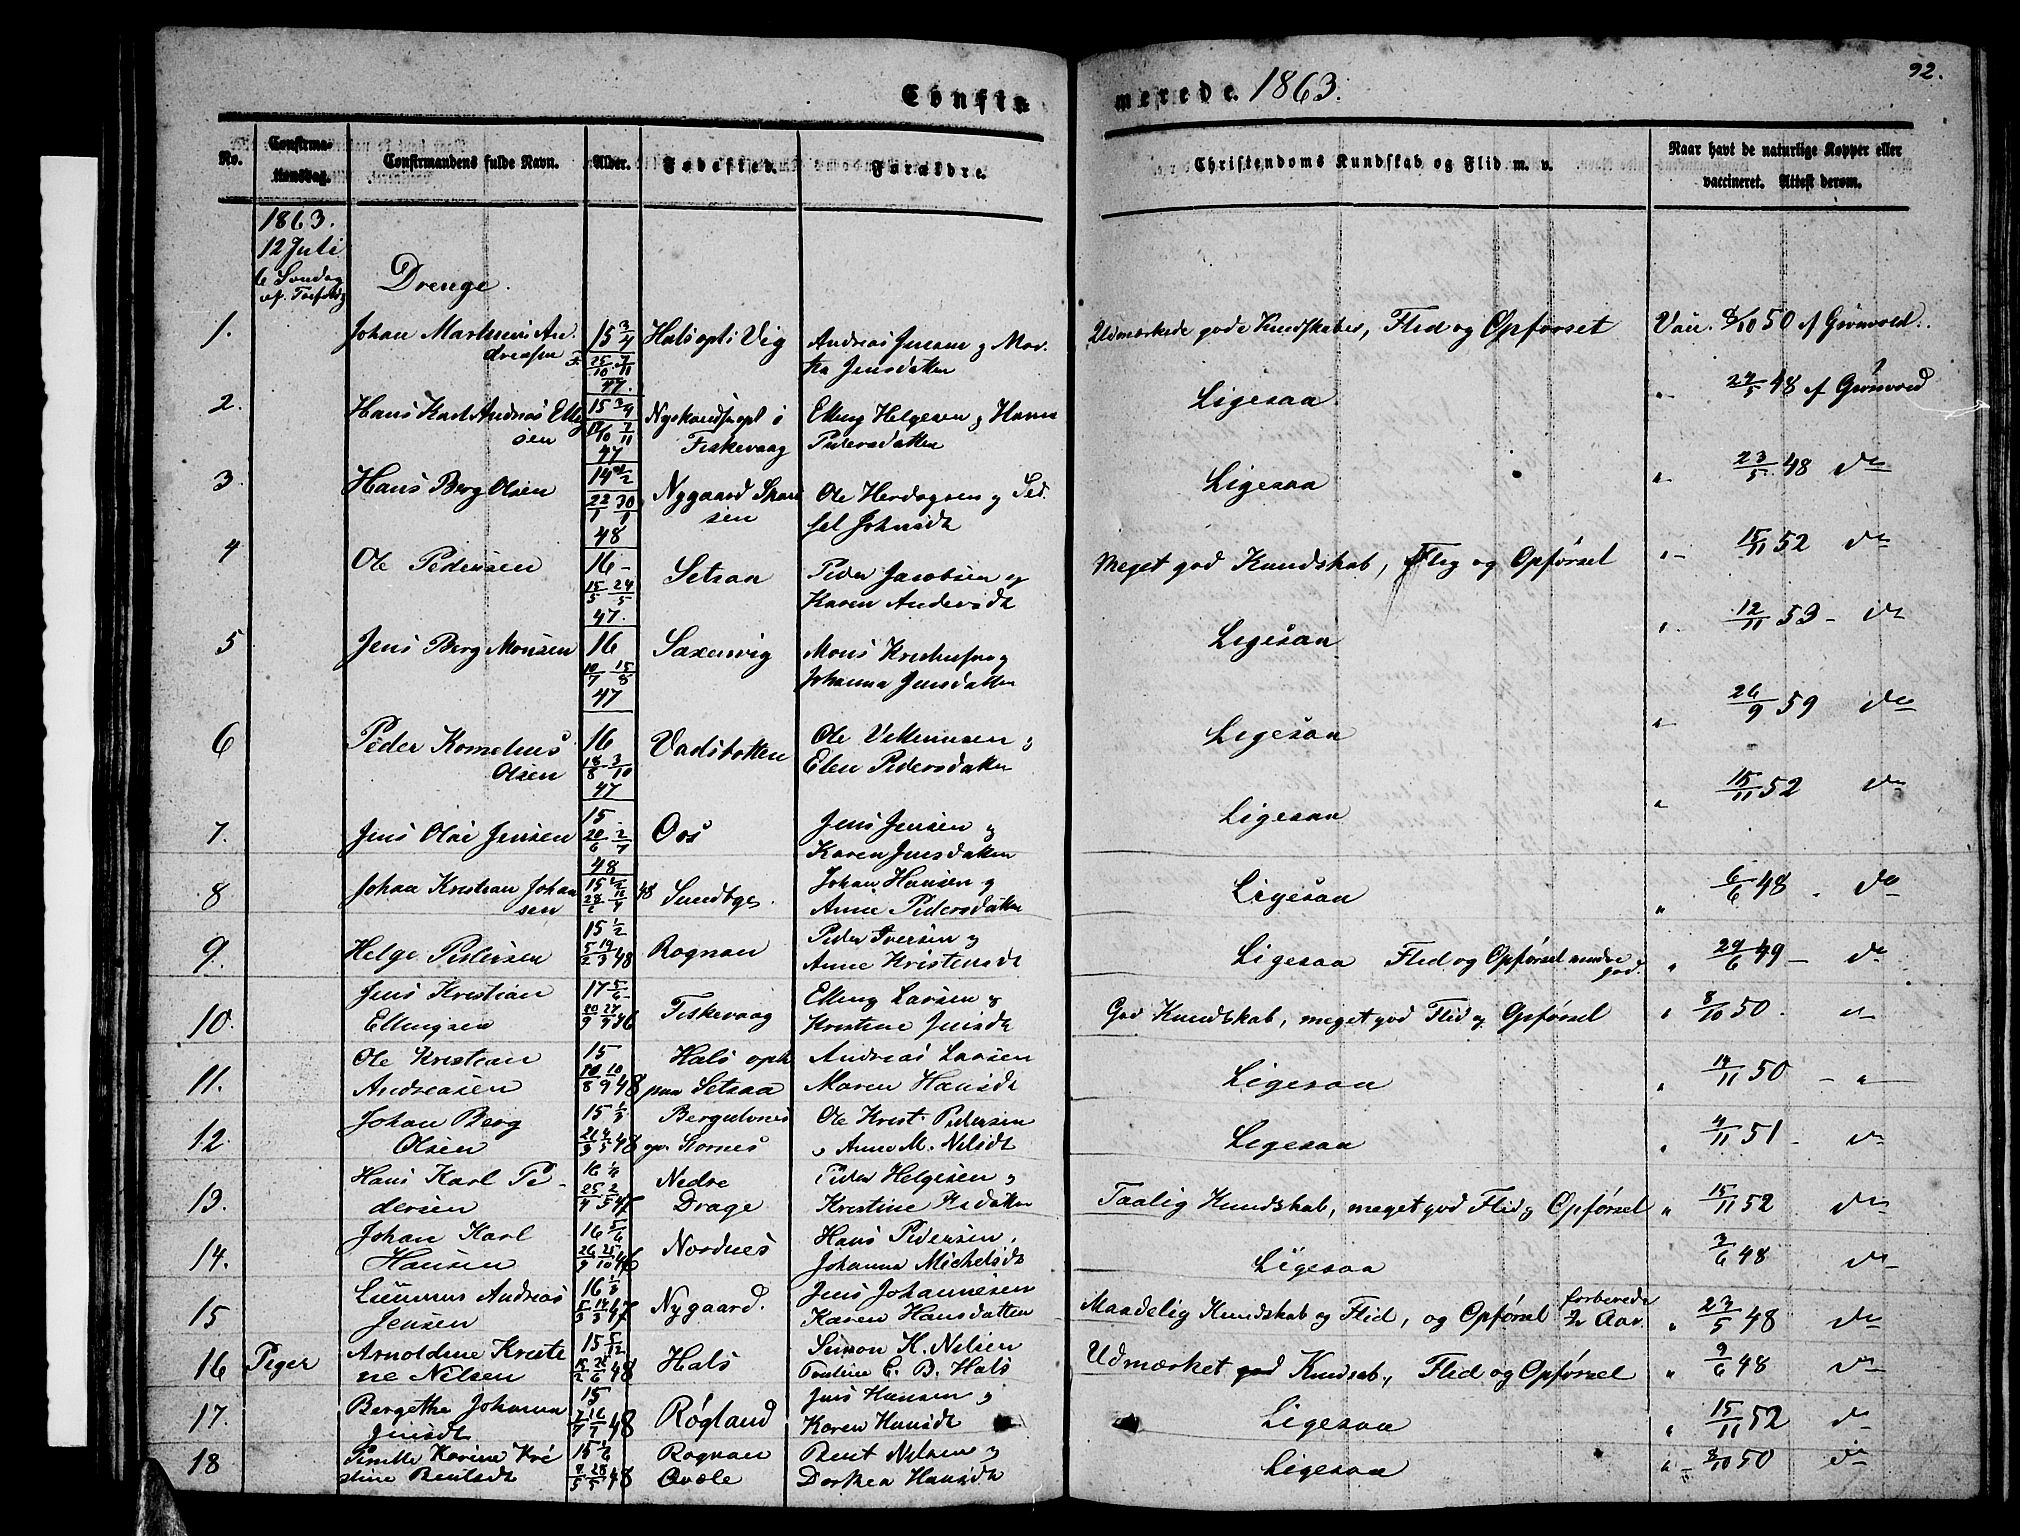 92.
Confir-
merede. 1863.
No.
Confirma-
tionsdag.
Confirmandens fulde Navn.
Alder.
Fødested.
Forældre.
Christendoms Kundskab og Flid m. v.
Naar havt de naturlige Kopper eller
vaccineret. Attest derom.
1863.
12 Juli
6 Søndag
ef. Trefold.
Drenge.
1. Johan Martinus An- 15 3/4 Hals opt i Vig Andreas Jensen og Mar- Udmærkede gode Kundskaber, Flid og Opførsel Vac. 50 af Grønvold.
dreasen 25/10 7/11 tha Jensdatter
47.
2. Hans Karl Andreas Elling 15 3/4 opt i Elling Helgesen og Hanna Ligesaa 24/5 48 af Grønvold
sen 7/11 Fiskevaag Pedersdatter
47
3 Hans Berg Olsen 14 1/2 Nygaard Ole Ligesaa 23/5 48 do
22/1 30/1 sel Johnsdt
48
4 Ole Pedersen 16 - Setsaa Peder Jacobsen og Meget god Kundskab, Flig og Opførsel 15/11 52 do
15/5 24/5 Karen Andersdt
47.
5 Jens Berg Monsen 16 Saxenvig Mons og Ligesaa 12/11 53 - do
15/8 Johanna Jensdatter
47
6 Peder Kornelius 16 Vadsbotten Ole og Ligesaa 26/9 59 do
Olsen 18/8 3/10 Elen Pedersdatter
47
7. Jens Olai Jensen 15 - Oos Jens Jensen og Ligesaa 15/11 52 do
20/6 2/7 Karen Jensdatter
48
8 Johan Kristian Johan 15 48 Sundby Johan Hansen og Ligesaa 6/6 48 - do
sen Anne Pedersdatter
9. Helge Pedersen 15 1/2 Rognan Peder Iversen og Ligesaa Flid og Opførsel mindre 29/6 49 - do
5/2 19/3 48 Anne Kristensdt god.
10. Jens Kristian 17 5/6 Fiskevaag Elling Larsen og God Kundskab, meget god Flid og Opførsel 8/10 50.
Ellingsen 46 Kristine Jensdt
11. Ole Kristian 15 Hals opt. Andreas Larsen Ligesaa 14/11 50 -
Andreasen 10/8 10/9 48 paa Setsaa Maren Hansdt
12. Johan Berg 15 Bergulvnes Ole Krist. Pedersen Ligesaa 4/11 51 - do
Olsen 48 Anne M. Nilsdt
13. Hans Karl Pe- 16 Nedre Peder Helgesen og Taalig Kundskab, meget god Flid og Opførsel 15/11 52 do
dersen 25/4 2/5 47 Drage Kristine
14. Johan Karl 16 5/6 Nordnes Hans Pedersen, Ligesaa 3/6 48 do
Hansen 26/9 25/10 46 Johanna Michelsdt
15 Andreas 16 Nygaard. Jens Johannesen Maadelig Kundskab og Flid, og Opførsel forberedt 2 Aar. 23/5 48 do
Jensen 47 Karen Hansdatter
16 Piger Arnoldine Kristi- 15 5/12 Hals Simon K. Nilsen Udmærket god Kundsab, Flid og Opførsel 9/6 48 do
ne Nilsen 48 Pauline E. B. Hals
17. Bergitha Johanna 15 Røgland Jens Hansen og Ligesaa 15/11 52 do
Jensdt 48 Karen Hansdt
18 Pernille Karine Kri- 15 Rognan Bent Nilsen og Ligesaa 50 do
stine Bentsdt 48 Øvele Dorthea Hansdt